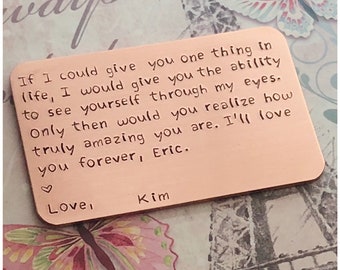 If I could give you one thing in
life, I would give you the ability
to see yourself through my eyes.
Only then would you realize how
truly amazing you are. I'll love
you forever, Eric.
♡
Love, Kim